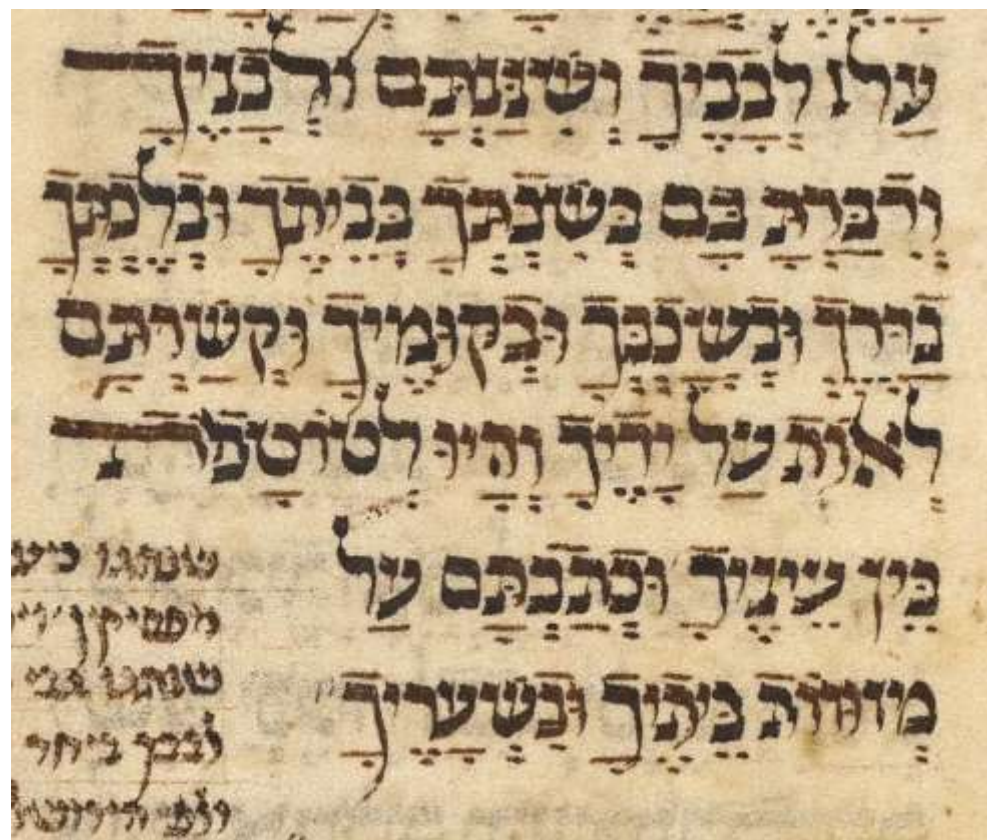 עַל לְבָבֶיךָ וְשִׁנַּנְתָּם לְבָנֶיךָ
וְדִבַּרְתָּ בָּם בְּשִׁבְתְּךָ בְּבֵיתֶךָ וּבְלֶכְתְּךָ
בַדֶּרֶךְ וּבְשָׁכְבְּךָ וּבְקוּמֶיךָ וּקְשַׁרְתָּם
לְאוֹת עַל יָדֶיךָ וְהָיוּ לְטוֹטָפֹת
בֵּין עֵינֶיךָ וּכְתַבְתָּם עַל
מְזוּזוֹת בֵּיתֶיךָ וּבִשְׁעָרֶיךָ
שנהגו
שנהגו גבי